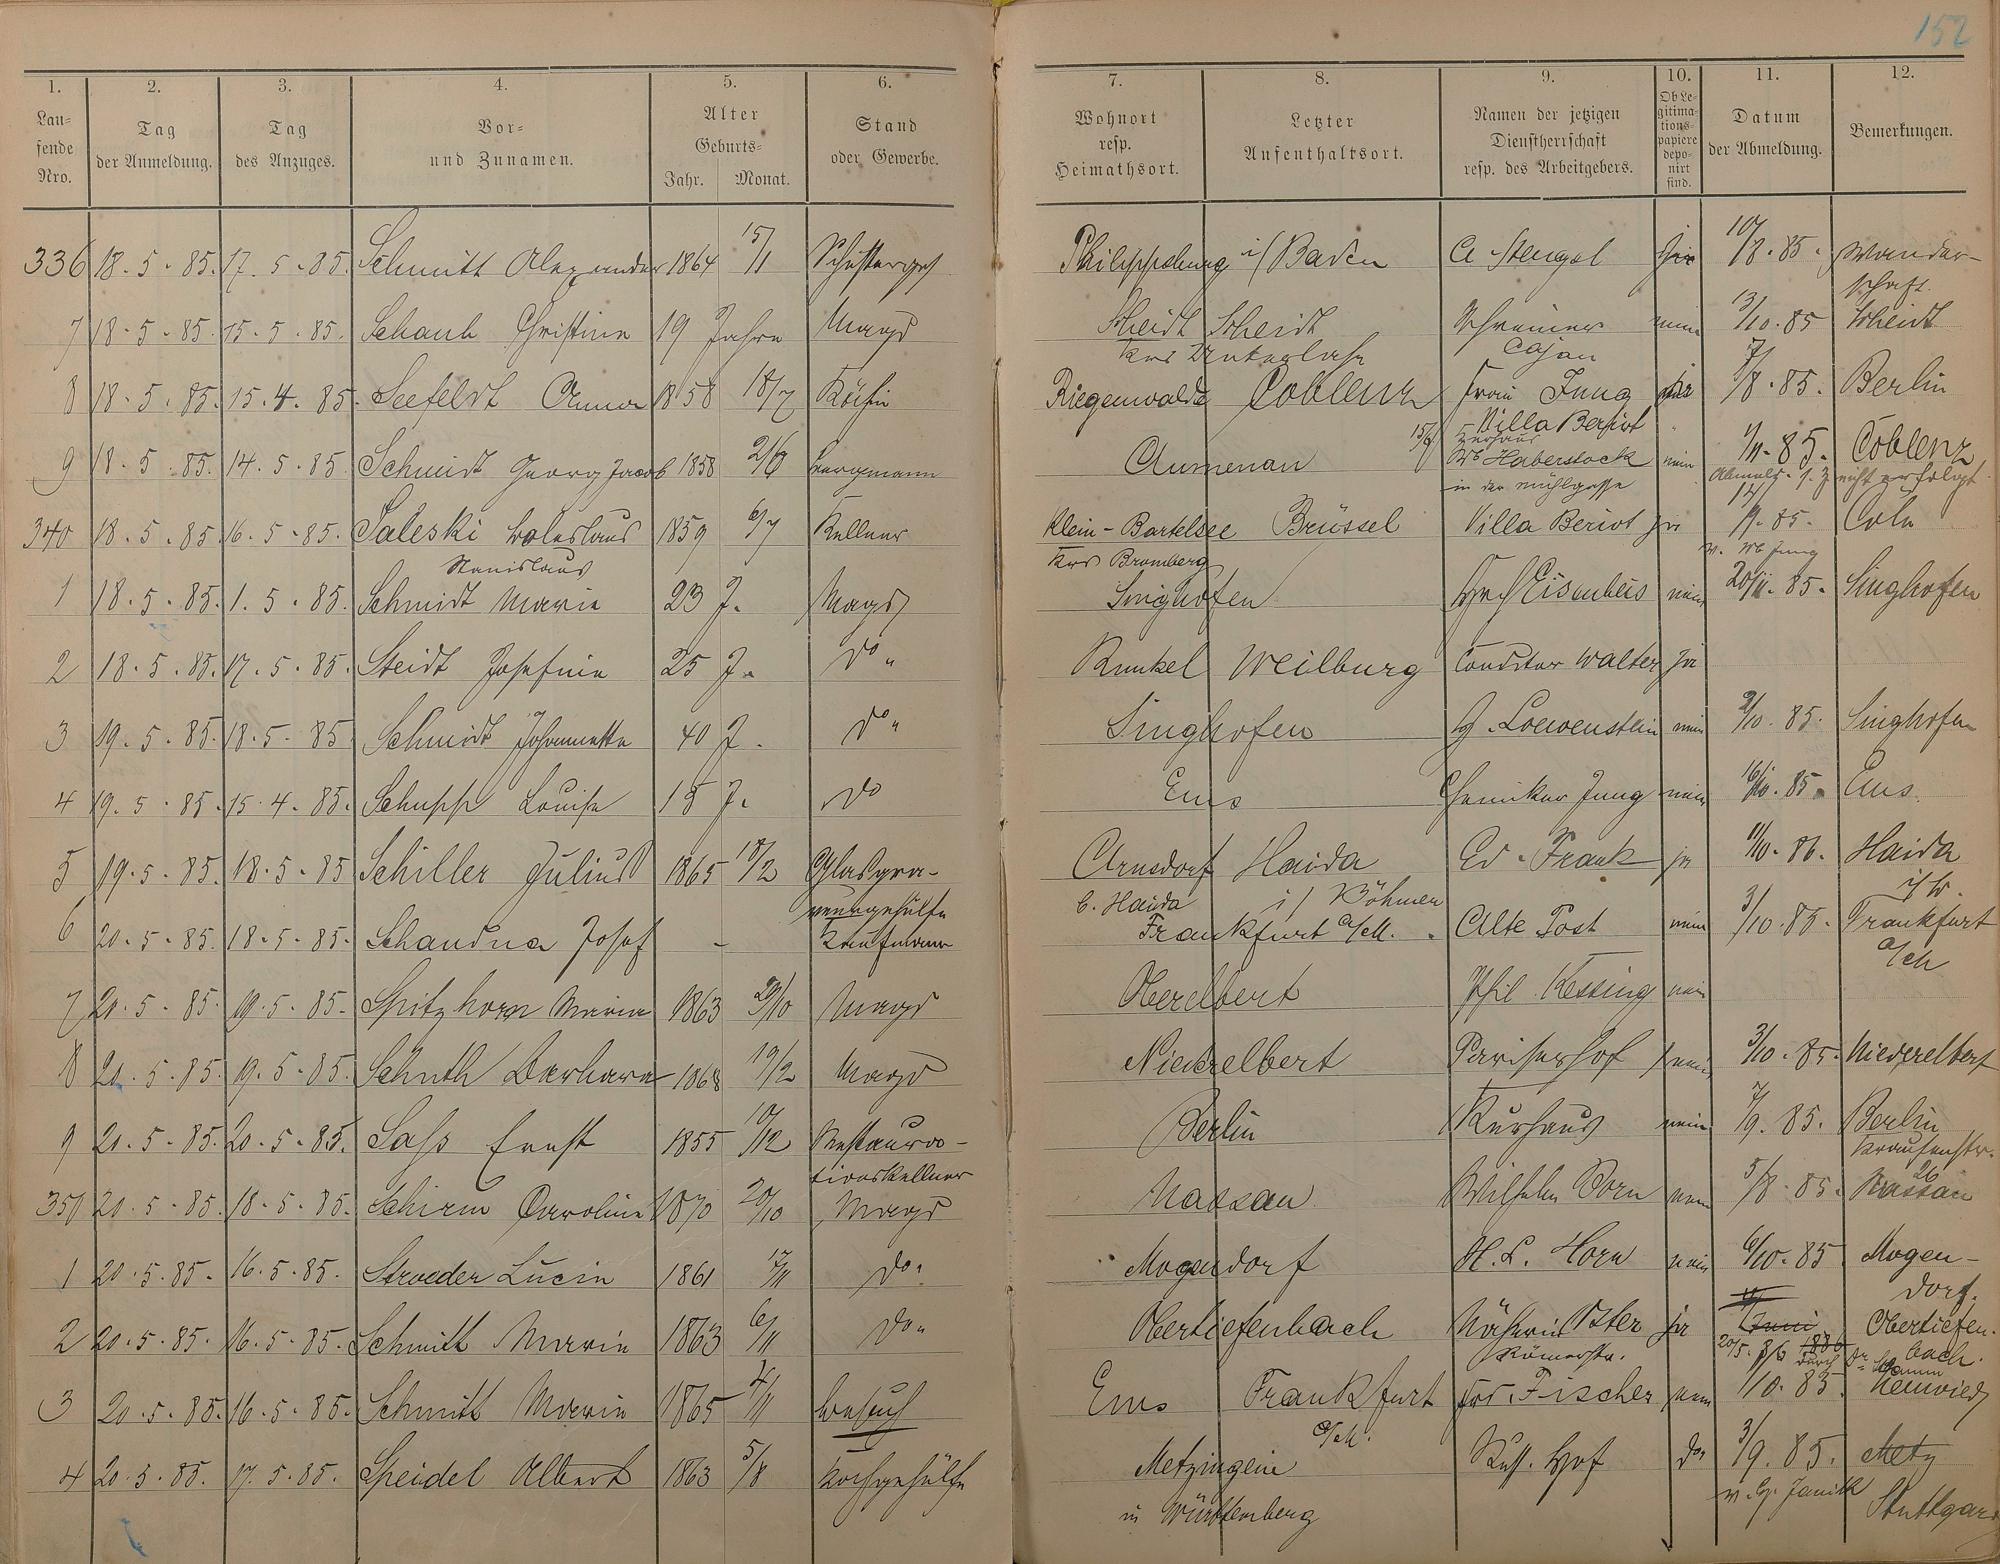 152
1. 2. 3. 4. 5. 6. 7. 8. 9. 10. 11. 12.
Lau=
fende
Nro.
Tag
der Anmeldung.
Tag
des Anzuges.
Vor=
und Zunamen.
Alter
Geburts=
Jahr. Monat.
Stand
oder Gewerbe.
Wohnort
resp.
Heimathsort.
Letzter
Aufenthaltsort.
Namen der jetzigen
Dienstherrschaft
resp. des Arbeitgebers.
Ob Le=
gitima=
tions=
papiere
depo=
nirt
sind.
Datum
der Abmeldung.
Bemerkungen.
336 18.5.85. 17.5.85. Schmitt Alexander 1864 15/1 Philippsburg i/ Baden A Stengel 10/8.85. Wander-
schaft.
7 18.5.85. 15.5.85. Christine 19 Jahre Magd Scheidt Scheidt Schreiner nein 13/10.85 Scheidt
Cajan
8 18.5.85. 15.4.85. Seefeldt Anna 1858 18/7 Köchin Coblenz Frau Jung 7/8.85. Berlin
Villa Beriot
9 18.5.85. 14.5.85. Schmidt Georg Jacob 1858 2/6 Bergmann Aumenau Haberstock nein 1/11.85. Coblenz
in der Mühlgasse nicht erfolgt
340 18.5.85 16.5.85. Saleski Boleslaus 1859 6/7 Kellner Klein-Bartelsee Brüssel Villa Beriot 12/9.85. Cöln
Stanislaus Krs Bromberg
1 18.5.85. 1.5.85. Schmidt Marie 23 J. Magd Singhofen Eisenbeis nein 20/11.85. Singhofen
2 18.5.85. 17.5.85. Steidt Josefine 25 J. do " Runkel Weilburg Conditor Walter ja
3 19.5.85. 18.5.85 Schmidt Johannette 40 J. do " Singhofen Loewenstein nein 2/10.85. Singhofen
4 19.5.85. 15.4.85. Schupp Louise 15 J. do Ems Chemiker Jung nein 16/10.85. Ems.
5 19.5.85. 18.5.85 Schiller Julius 1865 18/2 Glasgra-
veurgehülfe
Arnsdorf Haida Ed. Frank ja 11/10.86. Haida
b. Haida i/ Böhmen i/B.
6 20.5.85. 18.5.85. Josef - Kaufmann Frankfurt a/M. Alte Post nein 3/10.85. Frankfurt
a/M
7 20.5.85. 19.5.85. Spitzhorn Maria 1863 29/10 Magd Oberelbert Phil. Kessing nein
8 20.5.85. 19.5.85. Schuth Barbara 1868 19/2 Magd Niederelbert Pariserhof nein 3/10.85. Niederelbert
9 20.5.85. 20.5.85. Sass Ernst 1855 10/12 Restaura-
tionskellner
Berlin Kurhaus nein 7/9.85. Berlin
Krausenstr.
26
350 20.5.85. 18.5.85. Schirm Caroline 1870 20/10 Magd Nassau Wilhelm Born nein 5/8.85. Nassau
1 20.5.85. 16.5.85. Stroeder Lucia 1861 do " Mogendorf H. L. Horn nein 6/10.85 Mogen-
dorf.
2 20.5.85. 16.5.85. Schmitt Maria 1863 6/11 do " Obertiefenbach Näherin Oster ja Obertiefen-
bach.
Römerstr.
3 20.5.85. 16.5.85. Schmitt Maria 1865 Besuch Ems Frankfurt Fischer nein Neuwied
a/M.
4 20.5.85. 17.5.85. Speidel Albert 1863 5/8 Kochgehülfe Metzingein Russ. Hof do " 3/9.85. Metz
in Württemberg Stuttgard